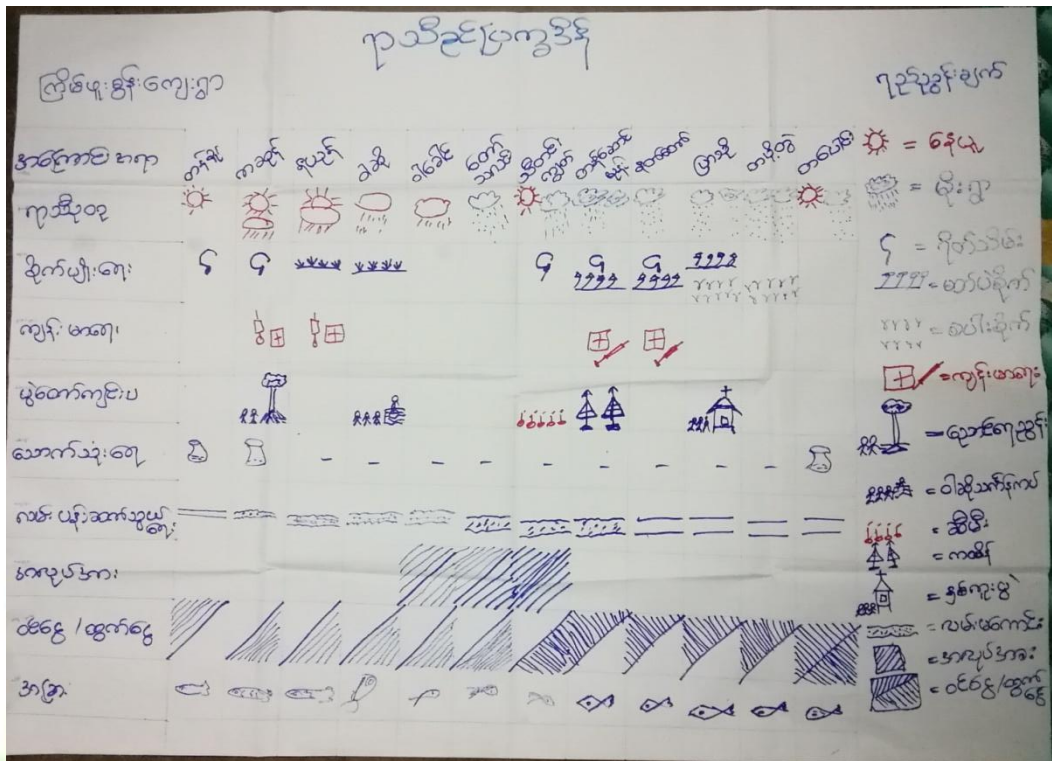 ရာသီခွင်ပြက္ခဒိန်
ကျေးရွာ
ရည်ညွှန်းချက်
အကြောင်းအရာ
တန်ခူး
ကဆုန်
နယုန်
ဝါဆို
ဝါခေါင်
တော်သလင်း
သီတင်းကျွတ်
တန်ဆောင်မုန်း
နတ်တော်
ပြာသို
တပို့တွဲ
တပေါင်း
ရာသီဥတု
စိုက်ပျိုးရေး
ကျန်းမာရေး
ပွဲတော်ကျင်းပ
သောက်သုံးရေ
လမ်းပန်းဆက်သွယ်ရေး
အလုပ်အား
ဝင်ငွေ / ထွက်ငွေ
အခြား
= နေပူ
= မိုးရွာ
= ရိတ်သိမ်း
= မတ်ပဲစိုက်
= စပါးစိုက်
= ကျန်းမာရေး
= ညောင်ရေသွန်း
= ဝါဆိုသင်္ကန်းကပ်
= ဆီမီး
= ကထိန်
= နှစ်ကူးပွဲ
= လမ်းမကောင်း
= အလုပ်အား
= ဝင်ငွေ/ထွက်ငွေ